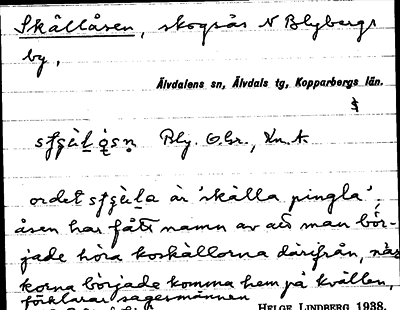 Skållåsen, skogsås N Blybergs
by,
Älvdalens sn, Älvdals tg, Kopparbergs län.
Bly. O.br., Kn. A.
ordet är 'skälla pingla';
åsen har fått namn av att man bör-
jade höra koskällorna därifrån, när
korna började komma hem på kvällen,
förklarar sagesmännen
HELGE LINDBERG 1938.